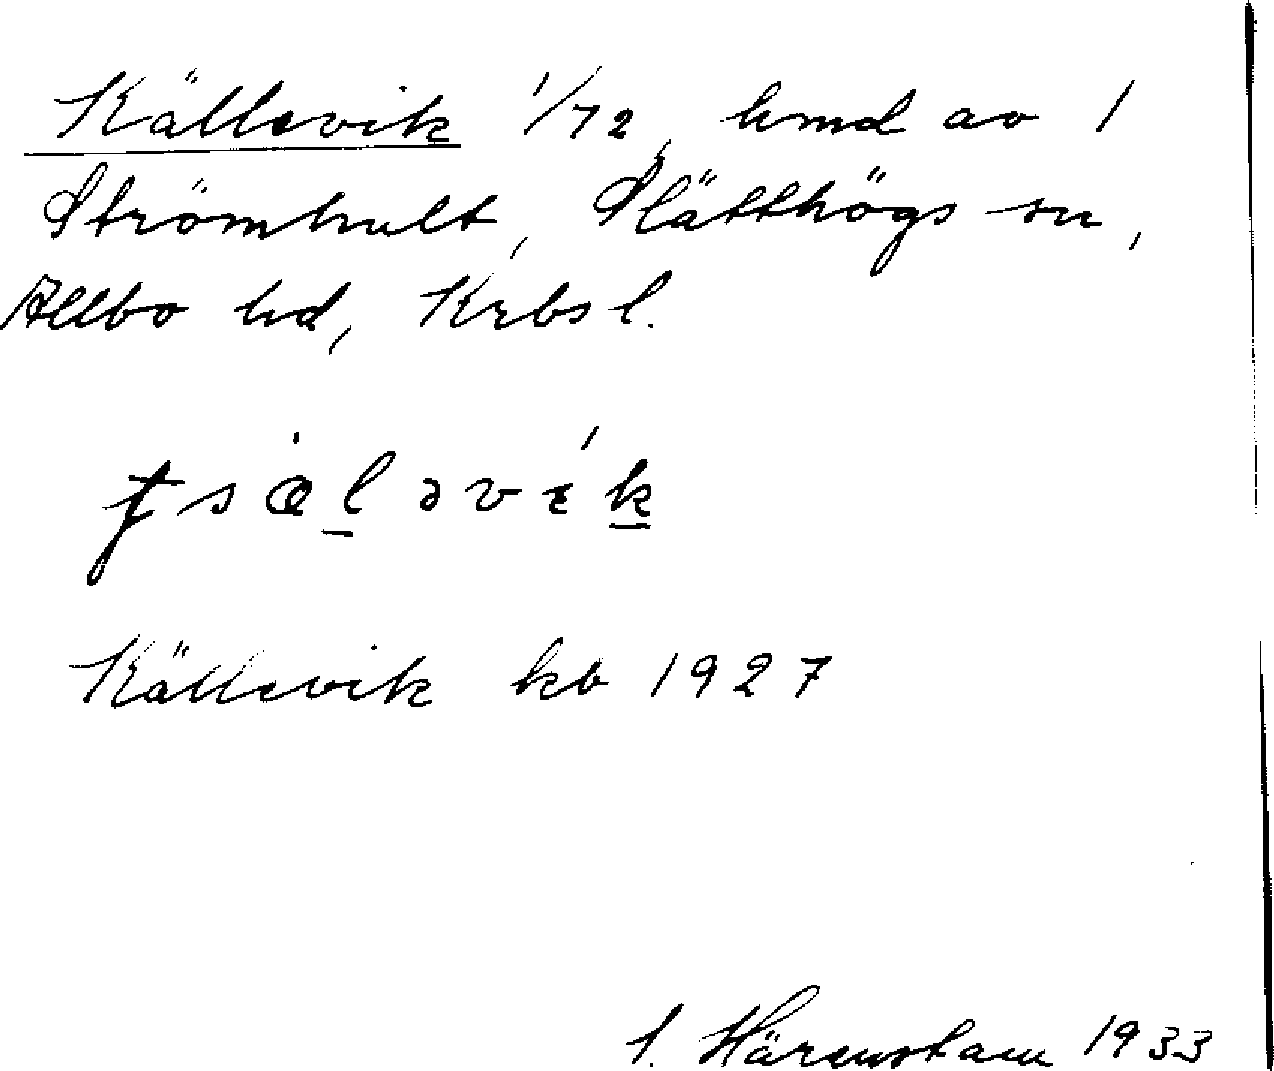 Källevik 1/72, hmd av 1
Strömhult, Slätthögs sn,
Allbo hd, Krbs l.
Källevik kb 1927
S. Härenstam 1933